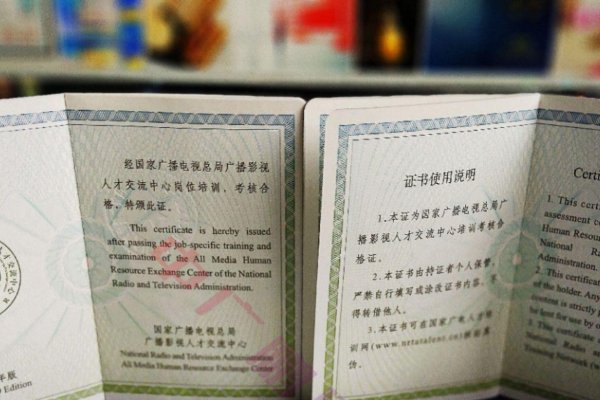 经国家广播电视总局广播影视
人才交流中心岗位培训、考核合
格，特颁此证。
This certificate is hereby issued
after passing the job-specific training and
examination of the All Media Human
Resource Exchange Center of the National
Radio and Television Administration.
国家广播电视总局
广播影视人才交流中心
National Radio and Television Administration
All Media Human Resource Exchange Center
年版
Edition
证书使用说明
1.本证为国家广播电视总局广
播影视人才交流中心培训考核合
格证。
2.本证书由持证者个人保管，
严禁自行填写或涂改证书内容，不
得转借他人。
3.本证书可在国家广电人才培
训网
伪。
1. This cert
assessment
Human Resour
National
Administration
2. This certificate
of the holder. Any
content is strictly
be lent for use by o
3. This certificate
National Radio
Training Network